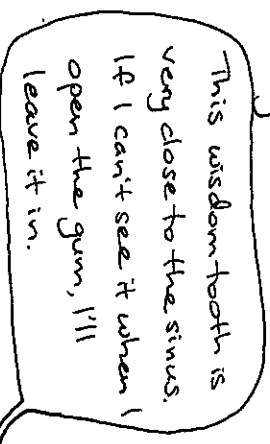 This wisdom tooth is
very close to the sinus.
If I can't see it when I
open the gum, I'll
leave it in.